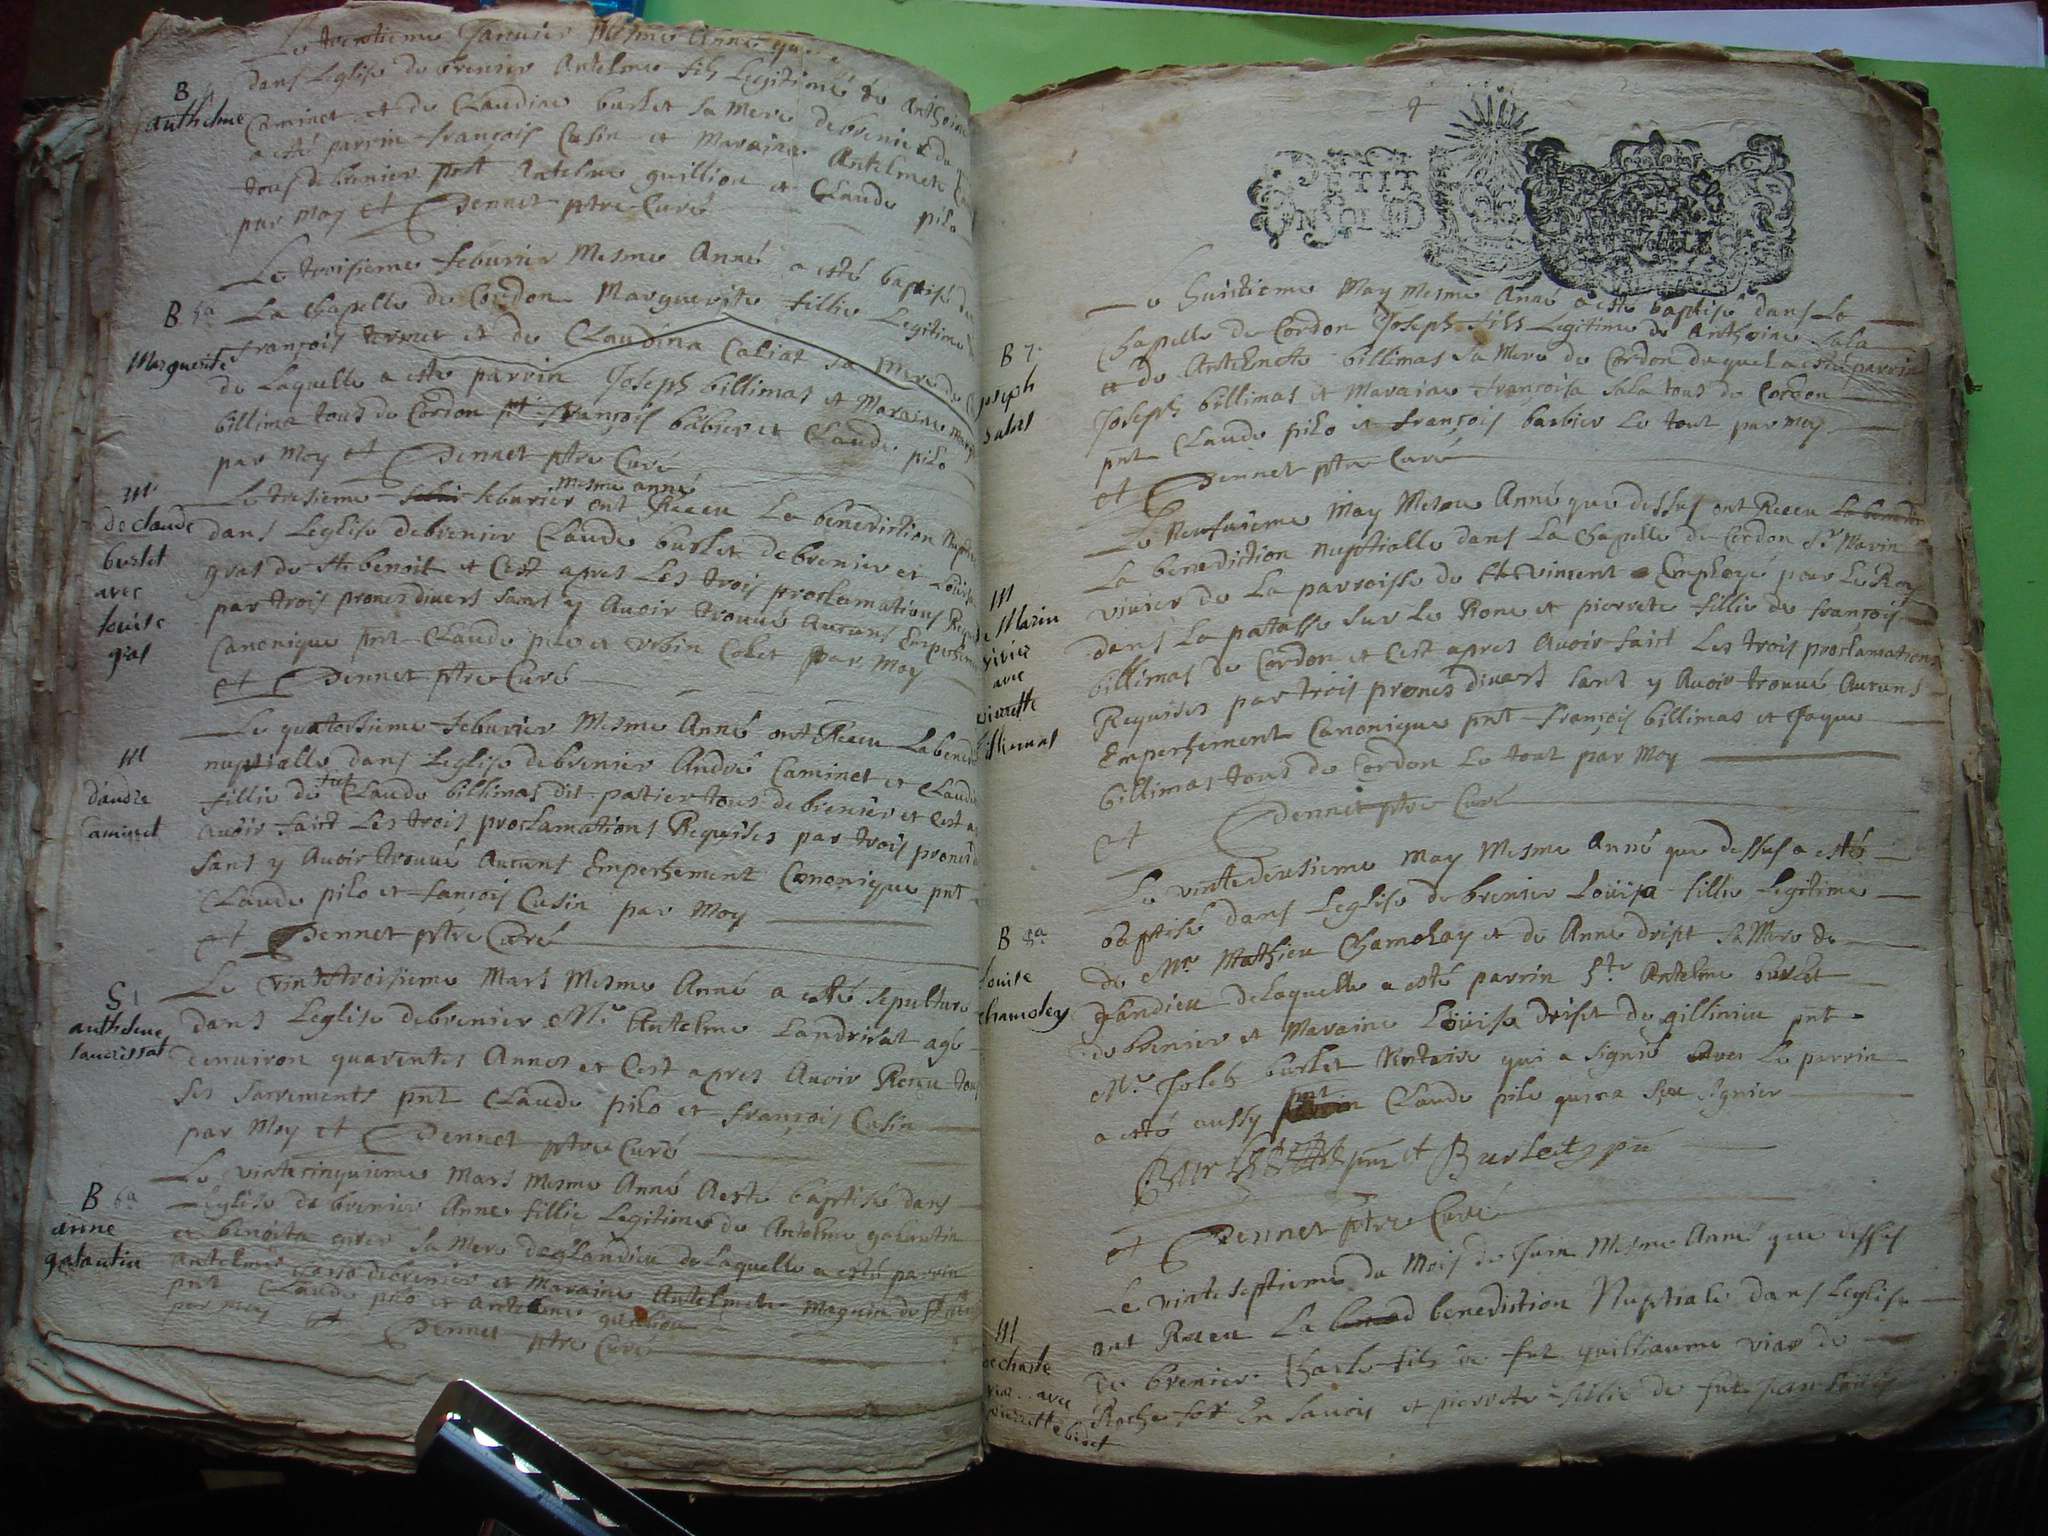 Le trentieme Janvier Mesme Anné que
dans Leglise de brenier Antelme fils Legitime de Anthoine
Caminet et de Claudine burlet sa Mere de brenier du
a esté parrin françois Cusin et Maraine Antelmete
tous de brenier pnt Antelme guillion et Claude pilo
par moy et Dennet ptre Curé
B
anthelme
Le troisieme feburier Mesme Anné a esté baptisé dans
La Chapelle de Cordon Marguerite fillie Legitime
françois vernet et de Claudina Caliat sa Mere de
de Laquelle a esté parrin Joseph billimas et Maraine
billima tous de Cordon pnt françois babier et Claude pilo
par Moy et Dennet ptre Curé
B 5a
Marguerite
mesme anné
Le tresieme feburier ont Receu La benediction
dans Leglise de brenier Claude burlet de brenier et Louise
gras de St benoit et Cest apres Les trois proclamations
par trois prones divers sans y Avoir trouvé Aucuns Emperhement
Canonique pnt Claude pilo et urbin Colet par Moy
et Dennet ptre Curé
M
de claude
burlet
avec
louise
gras
Le quatorsieme feburier Mesme Anné ont Receu La
nuptialle dans Leglise de brenier André Caminet et Claude
fillie de fut Claude billimas dit patier tous de brenier et Cest
Avoir faict Les trois proclamations Requises par trois prones
sans y Avoir trouvé Aucuns Emperhement Canonique pnt
Claude pilo et fançois Cusin par Moy
et Dennet ptre Curé
M
d'andre
caminet
Le vintetroisieme Mars Mesme Anné a esté sepulturé
dans Leglise de brenier Mre Antelme Landrisat agé
denuiron quarentes Annes et Cest apres Avoir Receu tous
ses sarrements pnt Claude pilo et françois Cusin
par Moy et Dennet ptre Curé
S 1
anthelme
Le vintecinquieme Mars Mesme Anné Aesté baptisé dans
Eglise de brenier Anne fillie Legitime de Antelme galantin
et benoita sa Mere de glandieu de Laquelle a esté parrin
antelme de brenier et Maraine Antelmete Maguin de
pnt Claude pilo et Antelme guillion
par moy et Dennet ptre Curé
B 6a
anne
galantin
PETIT
Le huitieme May Mesme Anné a esté baptisé dans La
Chapelle de Cordon Joseph fils Legitime de Anthoine Sala
et de Antelmete billimas sa Mere de Cordon duquel a esté parrin
Joseph billimas et Maraine françoisa Sala tous de Cordon
pnt Claude pilo et françois barbier Le tout par moy
et Dennet ptre Curé
B 7
joseph
salas
Le Neufuieme May Mesme Anné que dessus ont Receu
La benediction nuptialle dans La Chapelle de Cordon Sr Marin
vivier de La parroisse de St vincent Employé pour Le Roy
dans La patasse sur Le Rone et pierrete fillie de françois
billimas de Cordon et Cest apres Avoir faict Les trois proclamations
Requises par trois prones divers sans y Avoir trouvé Aucuns
Emperhement Canonique pnt françois billimas et Jaque
billimas tous de Cordon Le tout par Moy
et Dennet ptre Curé
M
de Marin
vivier
avec
pierrette
Le vintedeusieme May Mesme Anné que dessus a esté
baptisé dans Leglise de brenier Louisa fillie Legitime
de Mre Mathieu Chamolay et de Anne dript sa Mere de
glandieu de Laquelle a esté parrin Antelme burlet
de brenier et Maraine Louise dript de gillinieu pnt
Mre Joseph burlet Notaire qui a signé avec Le parrin
a esté aussy pnt Claude pilo qui na sçeu signier
Burlet pnt et Burlet
et Dennet ptre Curé
B 8a
Louise
chamoley
Le vinteseptieme du Mois de Juin Mesme Anné que dessus
ont Receu La benediction Nuptiale dans Leglise
de brenier Charle fils de fut guilliaume viar de
Roche fort En Savois et pierrete fillie de fut
M
de charle
avec
pierrette